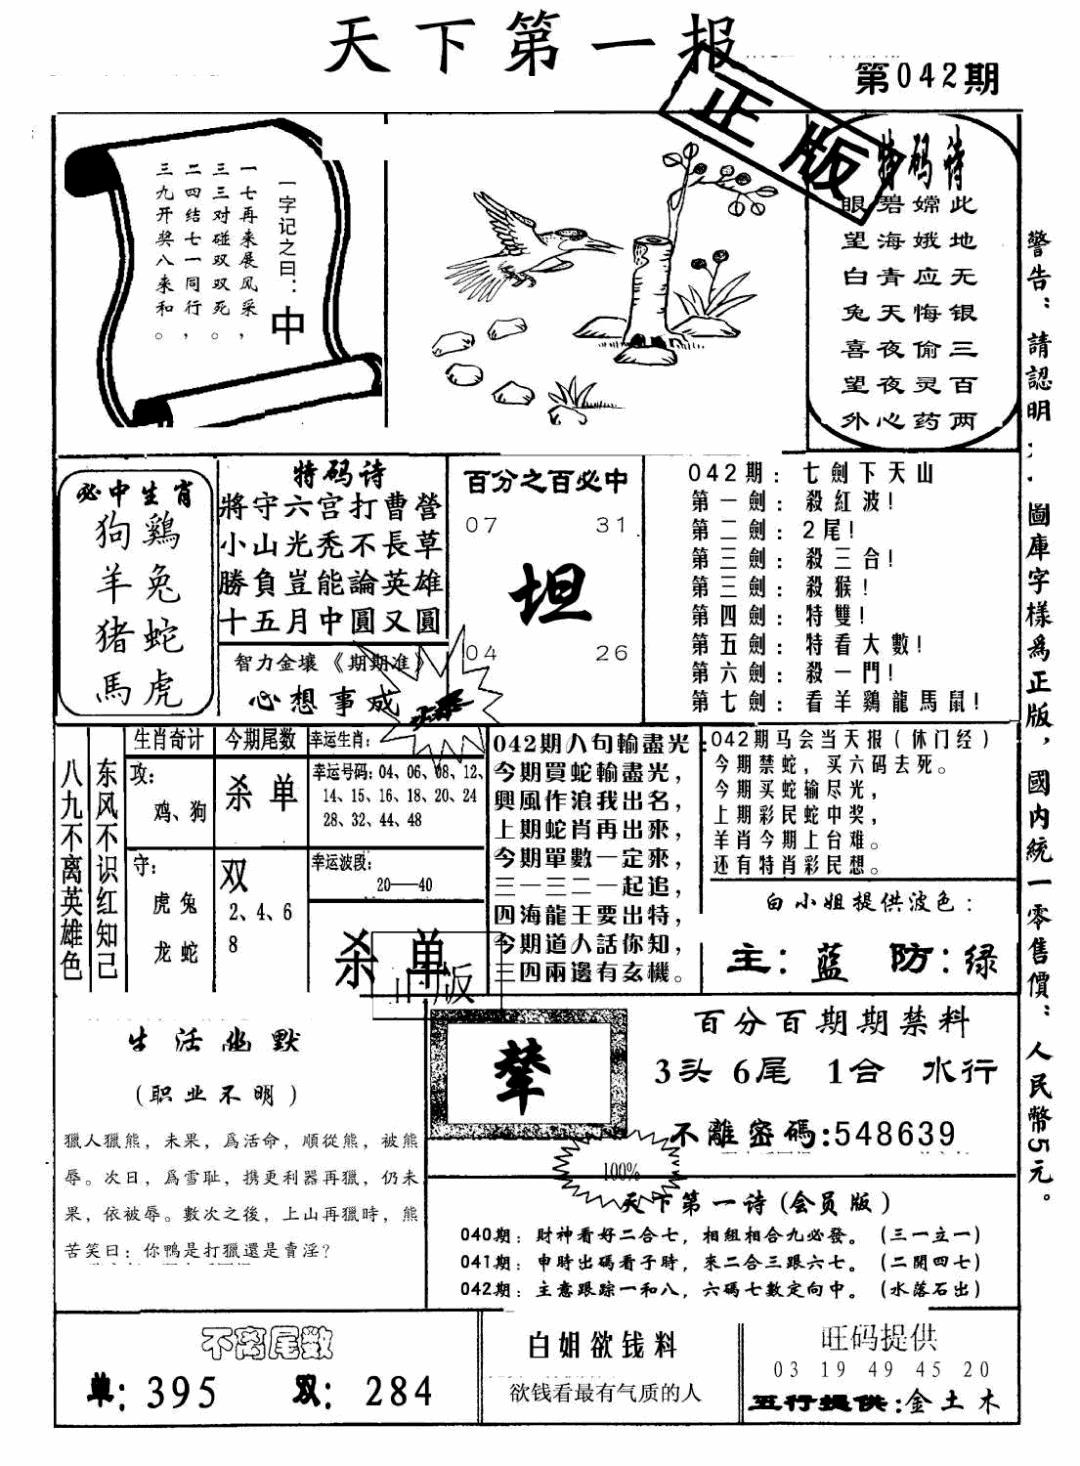 天下第一报
第042期
正版
一字记之曰：中
一七再来展风采，
三三对碰双双死。
二四结七一同行，
三九开奖八来和。
特码诗
此地无银三百两
嫦娥应悔偷灵药
碧海青天夜夜心
眼望白兔喜望外
警告：請認明
圖庫字樣爲正版，國内統一零售價：人民幣5元。
必中生肖
狗鷄
羊兔
猪蛇
馬虎
特码诗
將守六宫打曹營
小山光秃不長草
勝負豈能論英雄
十五月中圓又圓
智力金壤《期期准》
心想事成
百分之百必中
07 31
坦
04 26
042期：七劍下天山
第一劍：殺紅波！
第二劍：2尾！
第三劍：殺三合！
第三劍：殺猴！
第四劍：特雙！
第五劍：特看大數！
第六劍：殺一門！
第七劍：看羊鷄龍馬鼠！
八九不离英雄色
东风不识红知己
生肖奇计
攻：
鸡、狗
守：
虎兔
龙蛇
今期尾数
杀单
双
2、4、6
8
幸运生肖：
幸运号码：04、06、08、12、
14、15、16、18、20、24
28、32、44、48
幸运波段：
20——40
杀单
正版
042期八句輸盡光：
今期買蛇輸盡光，
興風作浪我出名，
上期蛇肖再出來，
今期單數一定來，
三一三二一起追，
四海龍王要出特，
今期道人話你知，
三四兩邊有玄機。
042期马会当天报（休门经）
今期禁蛇，买六码去死。
今期买蛇输尽光，
上期彩民蛇中奖，
羊肖今期上台难。
还有特肖彩民想。
白小姐提供波色：
主：蓝 防：绿
生活幽默
（职业不明）
獵人獵熊，未果，爲活命，順從熊，被熊
辱。次日，爲雪耻，携更利器再獵，仍未
果，依被辱。數次之後，上山再獵時，熊
苦笑曰：你鸭是打獵還是賣淫？
百分百期期禁料
3头 6尾 1合 水行
不離密碼:548639
100%
天下第一诗(会员版)
040期：财神看好二合七，相組相合九必發。（三一立一）
041期：申時出碼看子時，來二合三跟六七。（二開四七）
042期：主意跟踪一和八，六碼七數定向中。（水落石出）
不离尾数
单：395 双：284
白姐欲钱料
欲钱看最有气质的人
旺码提供
03 19 49 45 20
五行提供:金土木